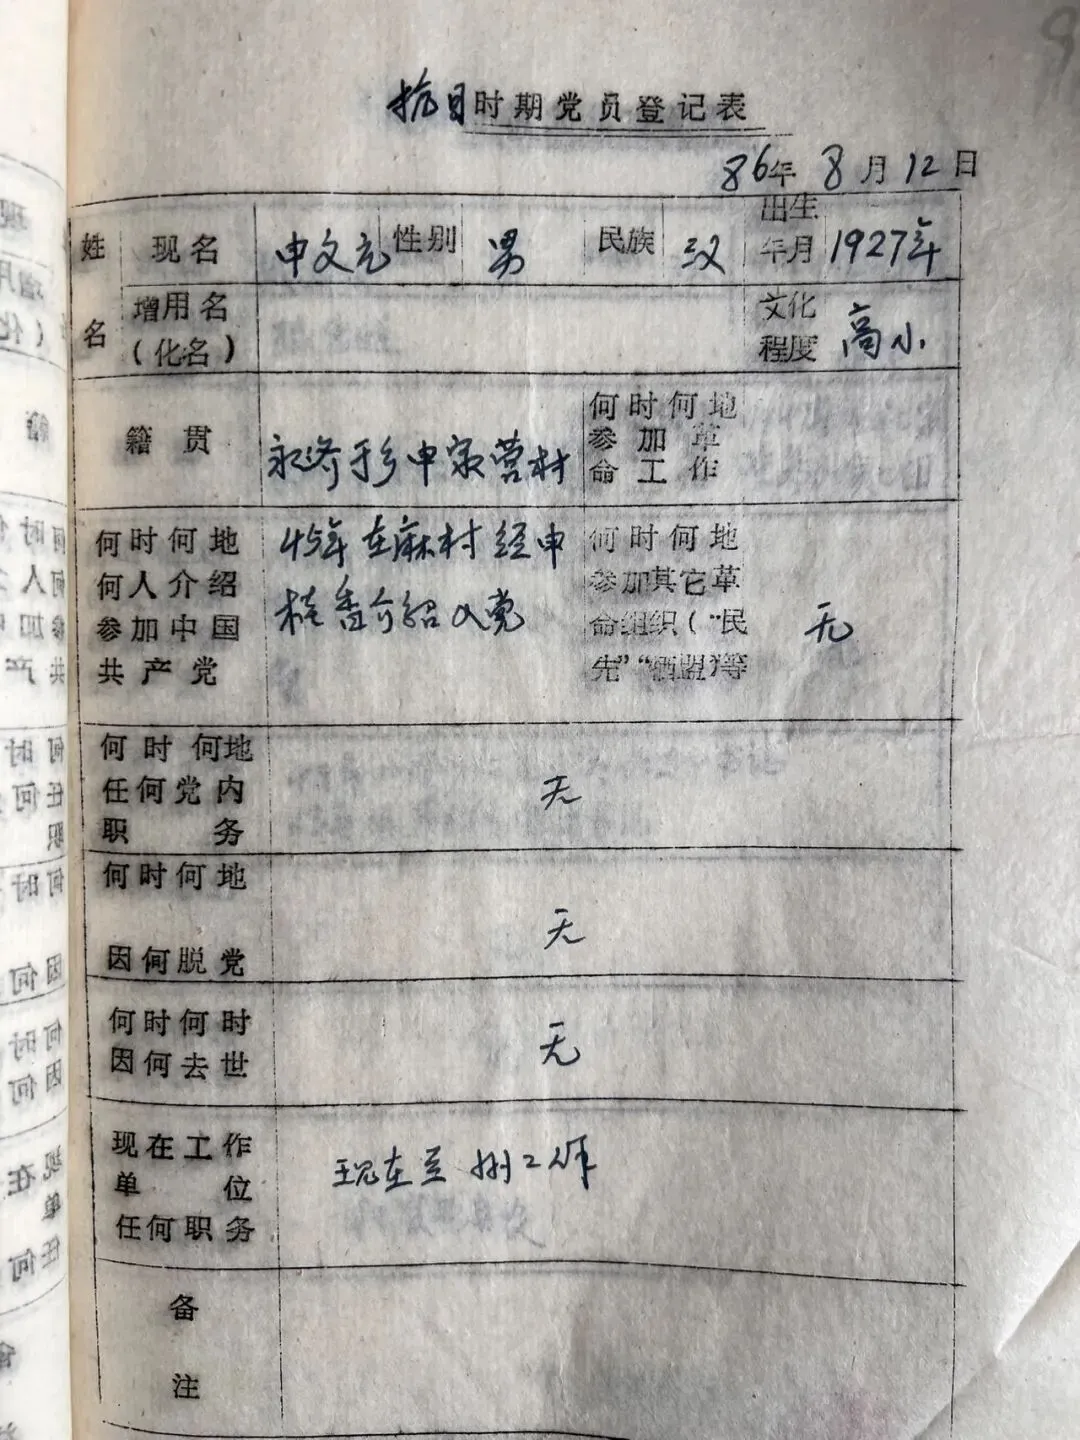 抗日时期党员登记表
86年8月12日
姓名 现名 申文元 性别 男 民族 汉 出生年月 1927年
增用名(化名) 文化程度 高小
籍贯 永济于乡申家营村 何时何地参加革命工作
何时何地何人介绍参加中国共产党 45年在麻村经申 香介绍入党 何时何地参加其它革命组织("民先""牺盟")等 无
何时何地任何党内职务 无
何时何地因何脱党 无
何时何时因何去世 无
现在工作单位任何职务 现在 工作
备注